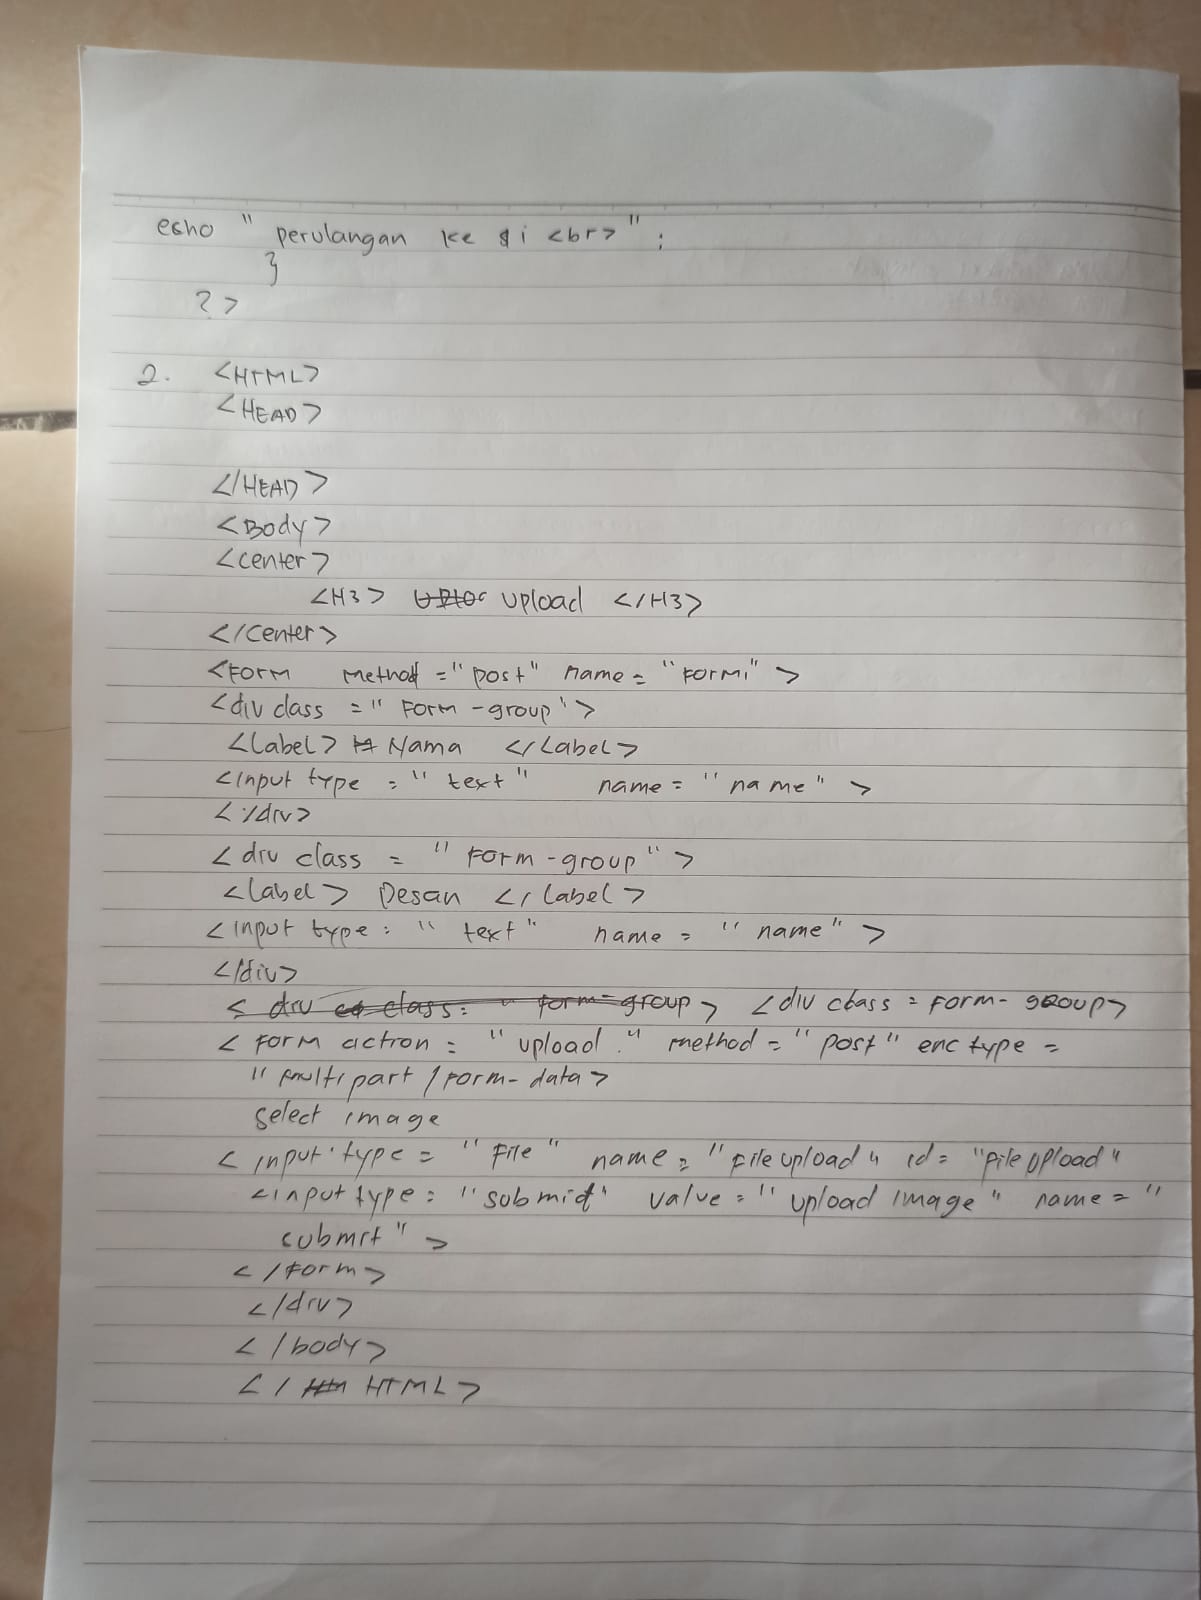 echo " perulangan ke $i <br>" ;
}
?>
2. <HTML>
<HEAD>
</HEAD>
<Body>
<center>
<H3> upload </H3>
</center>
<Form method = "post" name = "Form1" >
<div class = " Form - group" >
<Label> Nama </Label>
<input type = " text " name = " name " >
</div>
<div class = " Form - group " >
<label> Pesan </label>
<input type = " text " name = " name " >
</div>
<div class = form-group> <div class = form- group>
<form action = " upload. " method = " post " enctype =
" multipart / form-data >
select image
<input type = " File " name = " Fileupload " id = "file upload "
<input type = " submit " value = " upload image " name = "
submit " >
</form>
</div>
</body>
</ HTML>